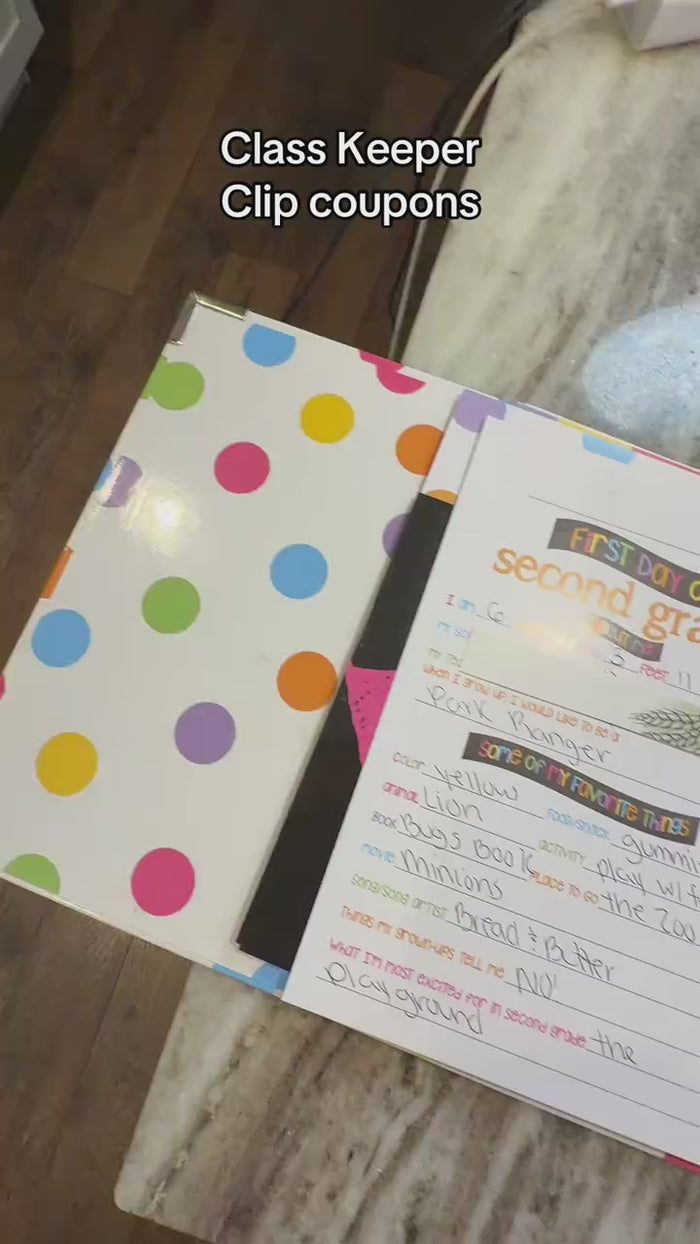 Class Keeper
Clip coupons
FIRST DAY O
second gra
I am 6
my sc
3 feet 11
my te
when I grow up I would like to be a
Park Ranger
Some of my Favorite Things
color Yellow food/snack gummi
animal Lion activity play w/ f
book Bugs Book place to go the Zoo
movie minions
song/song artist Bread & Butter
Things my grown-ups tell me NO
What I'm most excited for in second grade the
playground